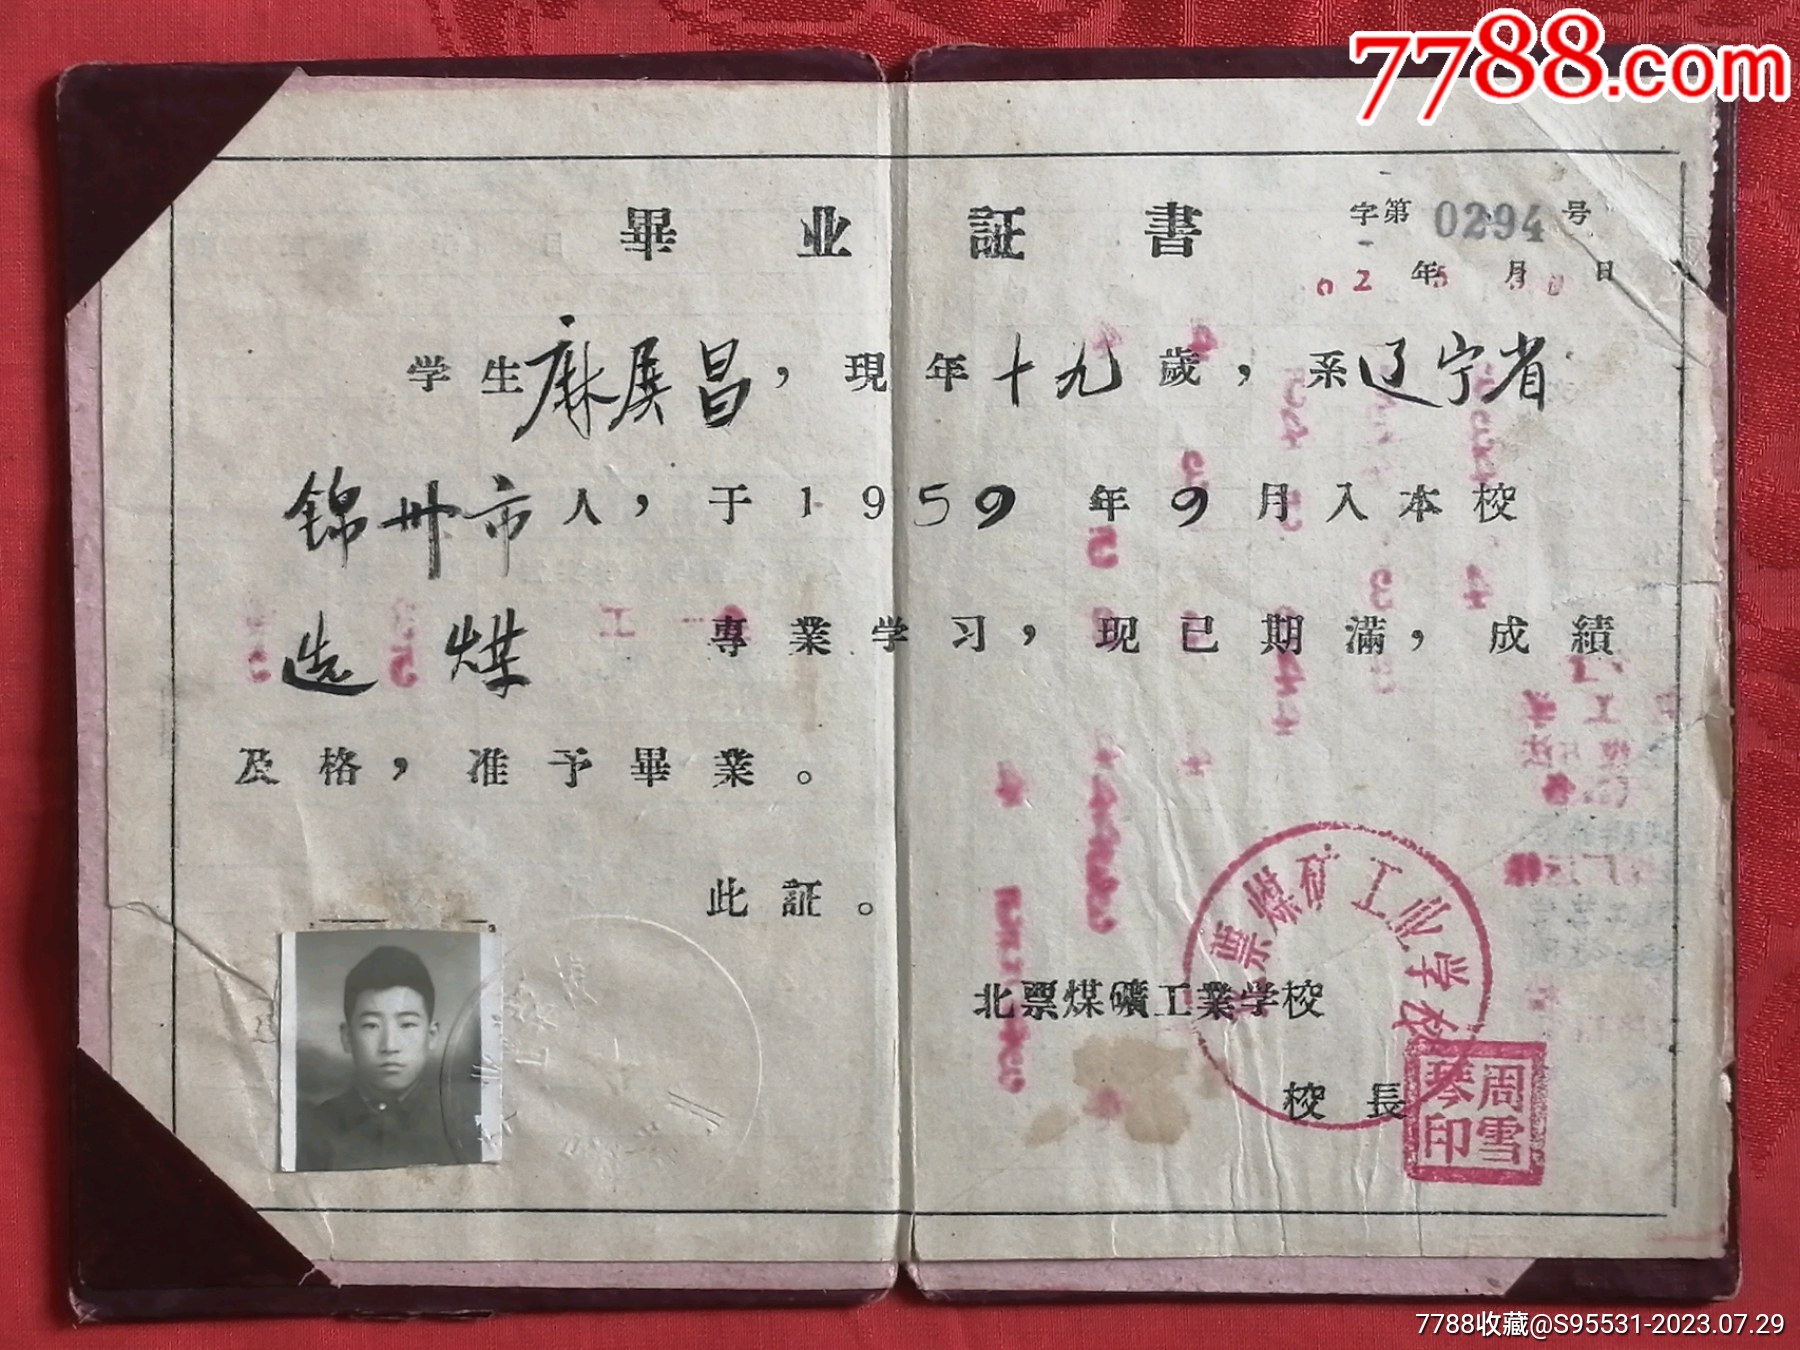 7788.com
畢业証書
字第0294号
02年5月30日
学生麻展昌，現年十九歲，系辽宁省
錦州市人，于1959年9月入本校
选煤專業学习，现已期滿，成績
及格，准予畢業。
此証。
票煤矿工业学校
北票煤礦工業学校
校長
周雪琴印
7788收藏@S95531-2023.07.29